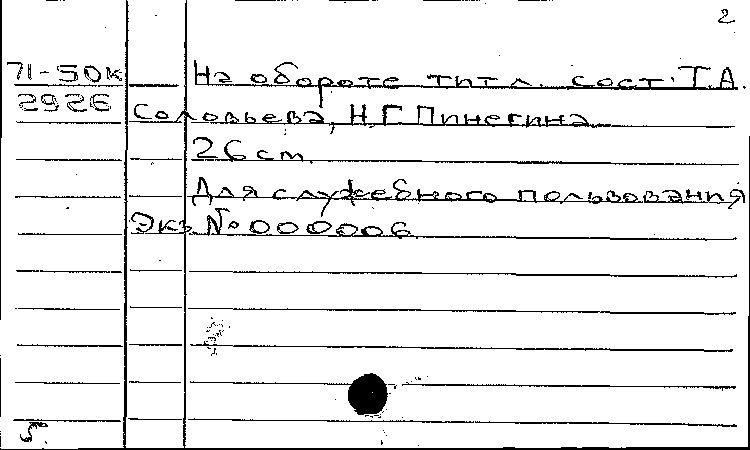 2
71-50к На обороте тит л. сост. Т.А.
2926 Соловьева, Н.Г. Пинегина
26 cm.
Для служебного пользования
Экз. № 000006
5.